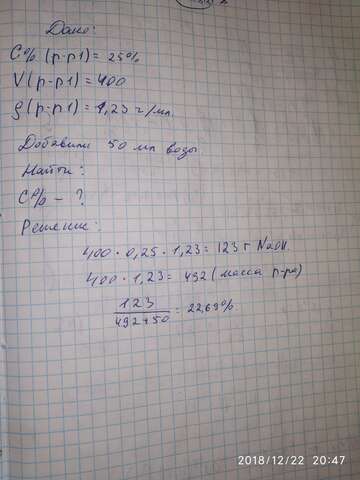 Дано:
С% (р-р1) = 25%
V (р-р1) = 400
ρ (р-р1) = 1,23 г/мл
Добавили 50 мл воды
Найти:
С% - ?
Решение:
400 · 0,25 · 1,23 = 123 г NaOH
400 · 1,23 = 492 (масса р-ра)
123
492+50 = 22,69%
2018/12/22 20:47